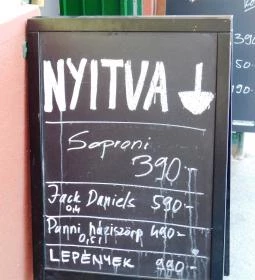 NYITVA
Soproni
390.-
Jack Daniels 590.-
0,4
Panni háziszörp 490.-
0,5 l
LEPÉNYEK 990.-
390
50
190